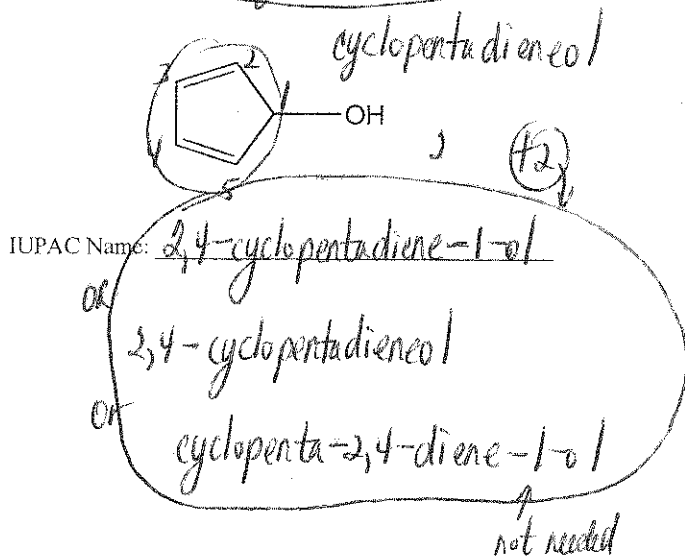 cyclopentadieneol
3 2 1 OH
4 5
+2
IUPAC Name: 2,4-cyclopentadiene-1-ol
or
2,4-cyclopentadieneol
or
cyclopenta-2,4-diene-1-ol
not needed